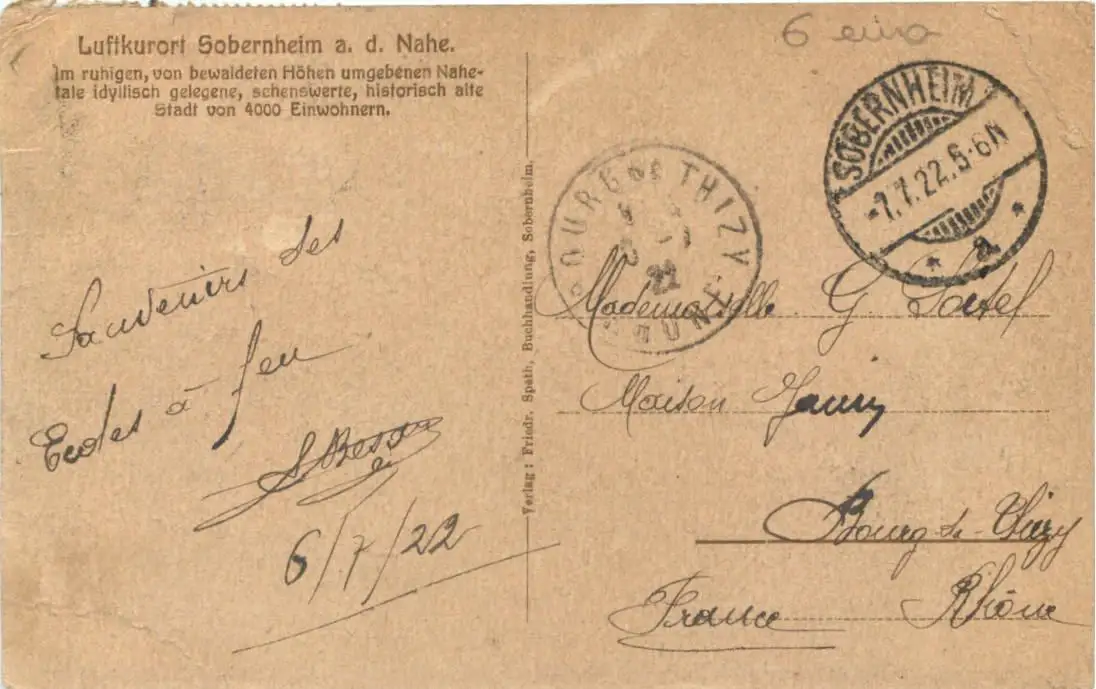 6 euro
Luftkurort Sobernheim a. d. Nahe.
Im ruhigen, von bewaldeten Höhen umgebenen Nahe-
tale idyllisch gelegene, sehenswerte, historisch alte
Stadt von 4000 Einwohnern.
SOBERNHEIM
-7.7.22.5-6N
* a *
BOURG DE THIZY
22
RHONE
Souvenirs des
Ecoles à feu
6/7/22
Verlag: Friedr. Spath, Buchhandlung, Sobernheim.
Mademoiselle G.
Maison
Bourg-de-Thizy
Rhône
France